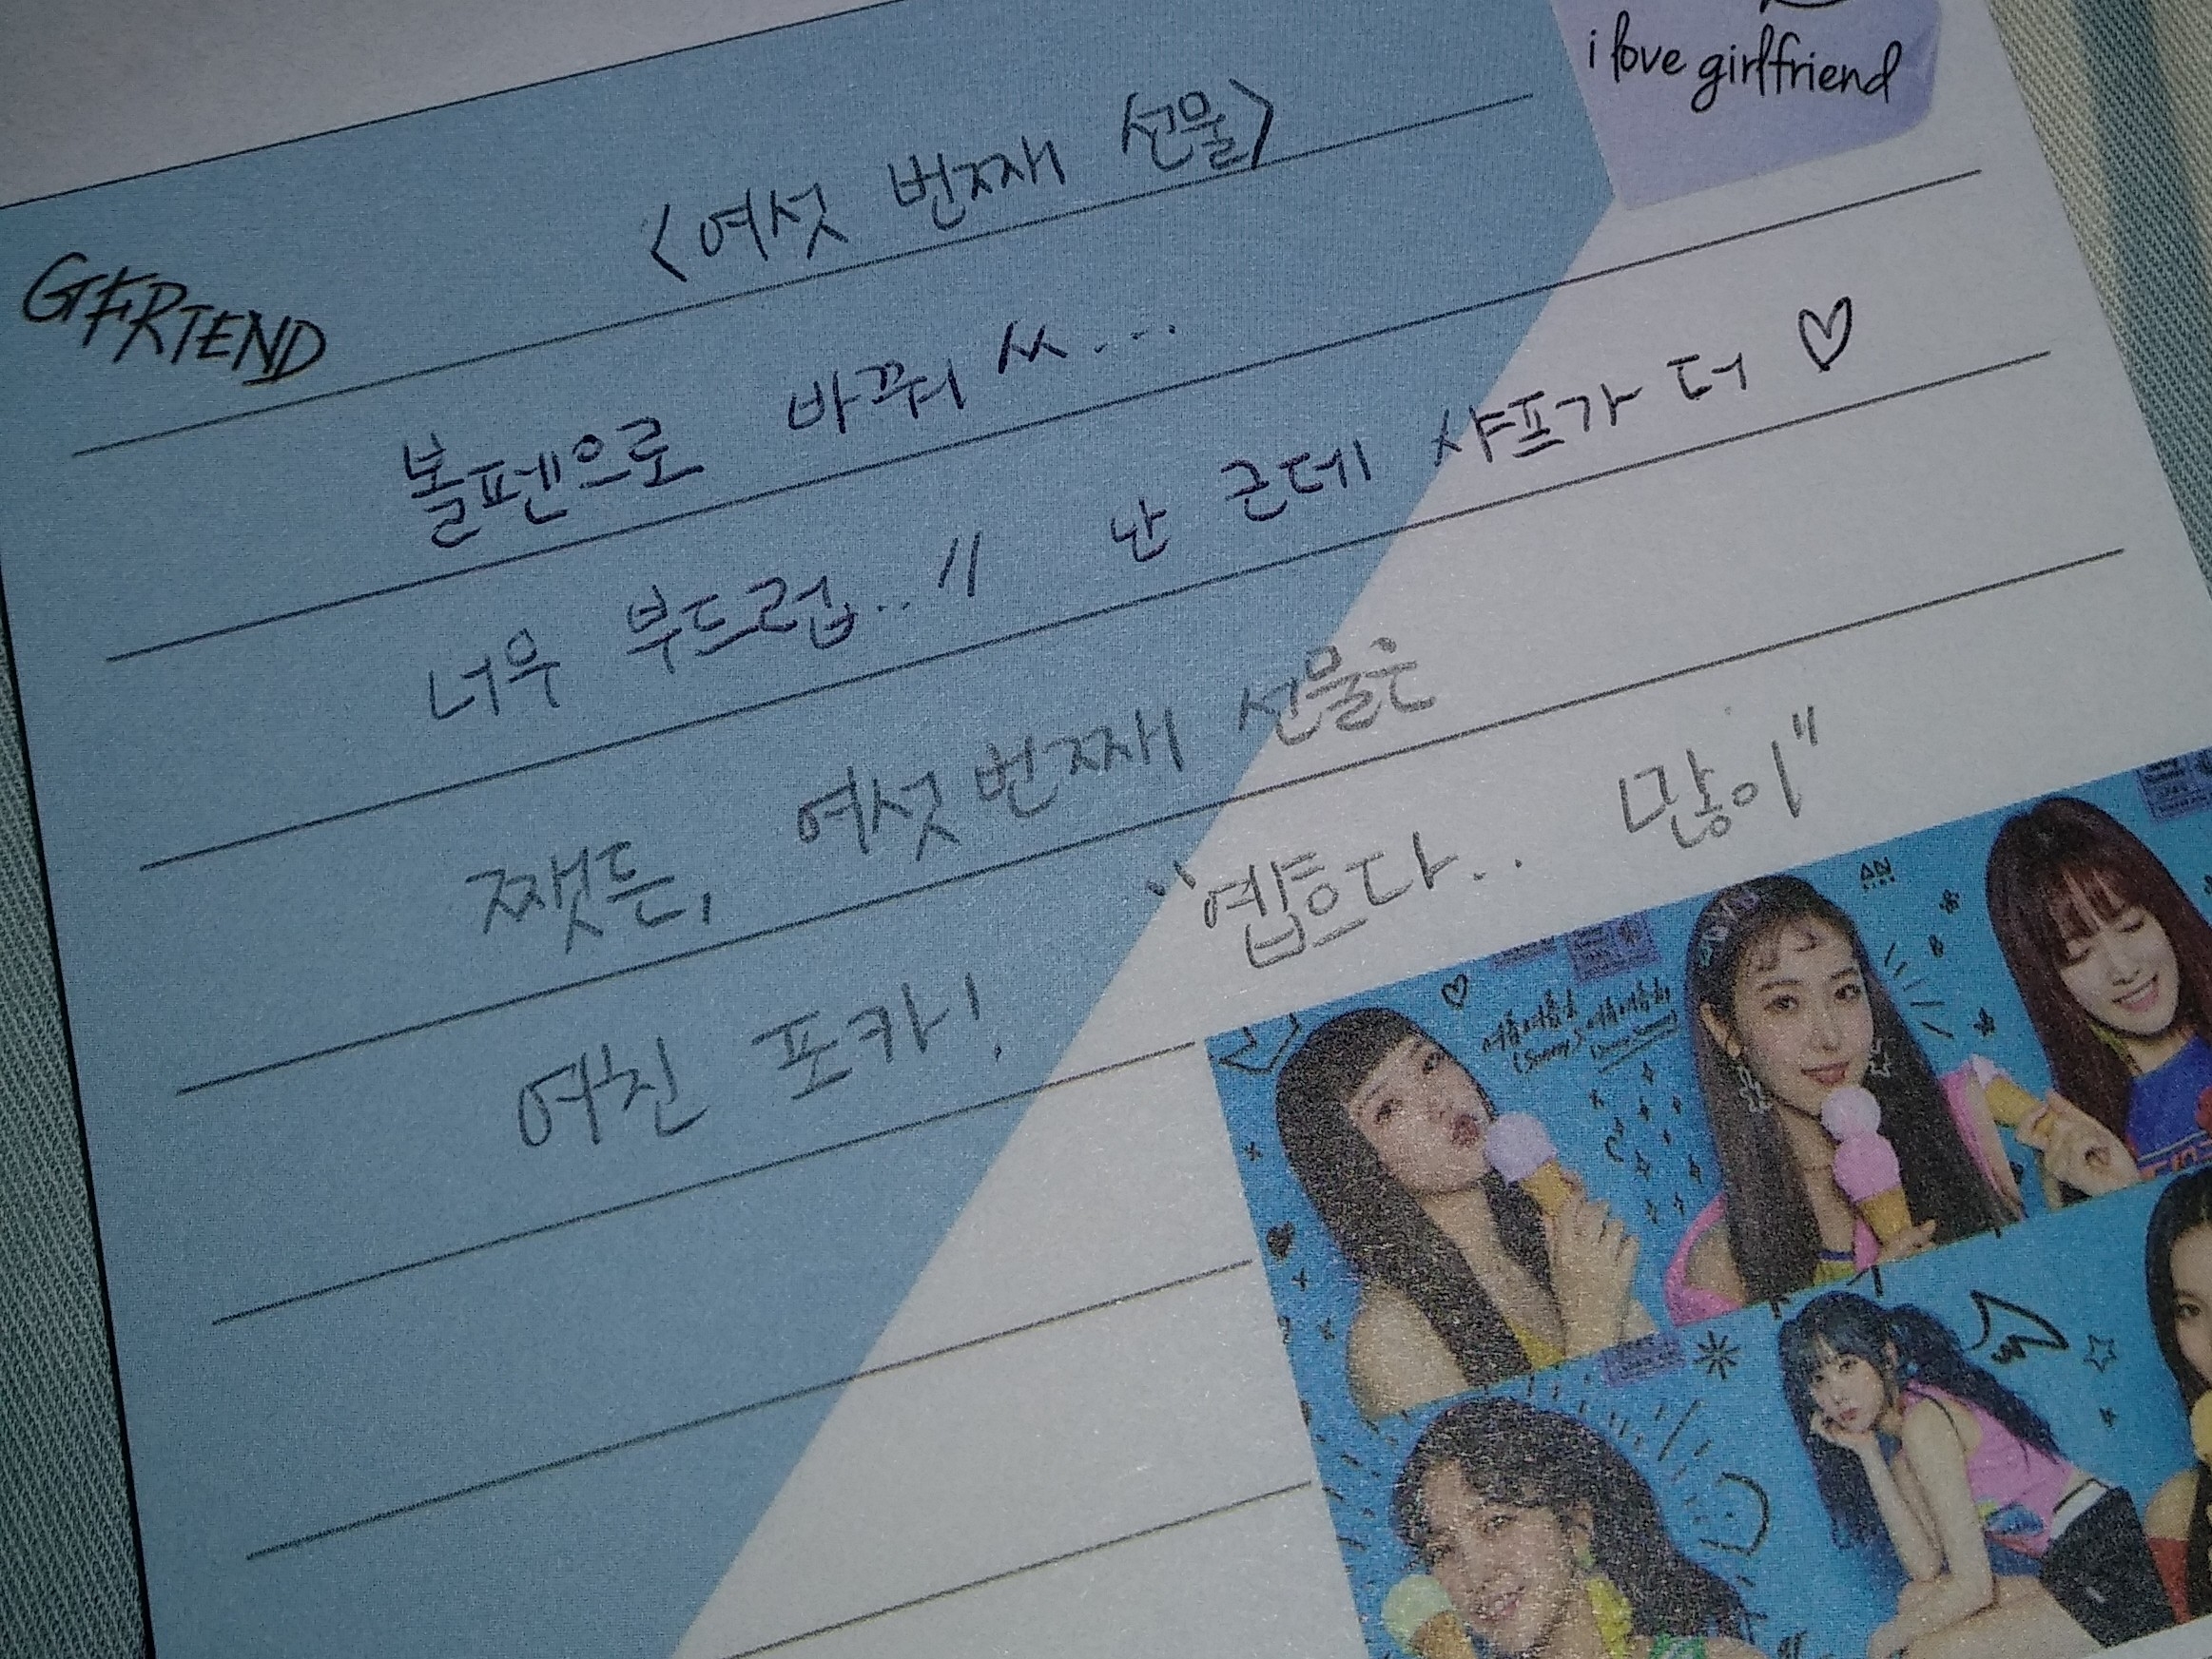 i love girlfriend
<여섯 번째 선물>
GFRIEND
볼펜으로 바꿔 ㅆ...
너우 부드럽..// 난 근데 샤프가 더 ♡
쨋든, 여섯 번째 선물은
"옙쁘다.. 많이"
여친 포카!
여름여름해
(Sunny